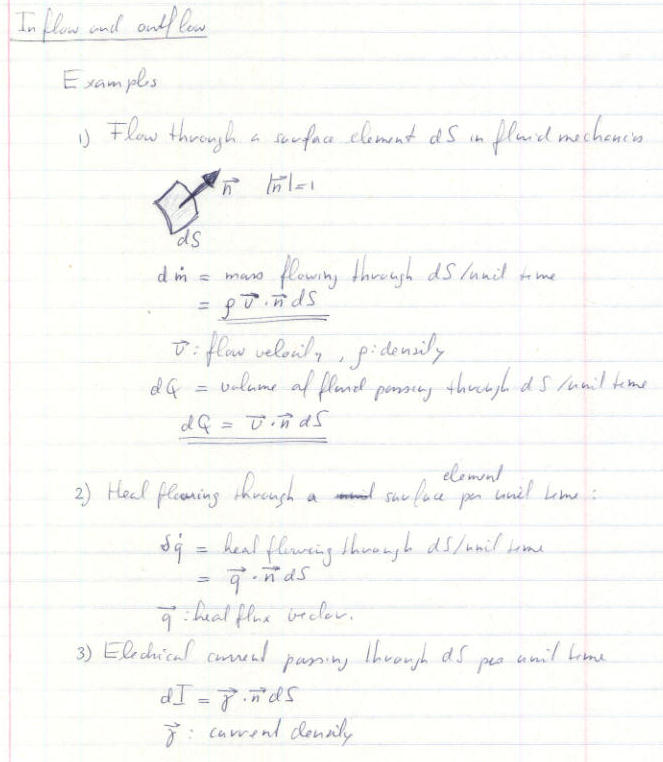 Inflow and outflow
Examples
1) Flow through a surface element dS in fluid mechanics
n⃗ |n⃗|=1
dS
dṁ = mass flowing through dS/unit time
= ρ v⃗·n⃗ dS
v⃗: flow velocity, ρ: density
dQ = volume of fluid passing through dS/unit time
dQ = v⃗·n⃗ dS
element
2) Heat flowing through a surface per unit time:
δq̇ = heat flowing through dS/unit time
= q⃗·n⃗ dS
q⃗: heat flux vector.
3) Electrical current passing through dS per unit time
dI = j⃗·n⃗ dS
j⃗: current density